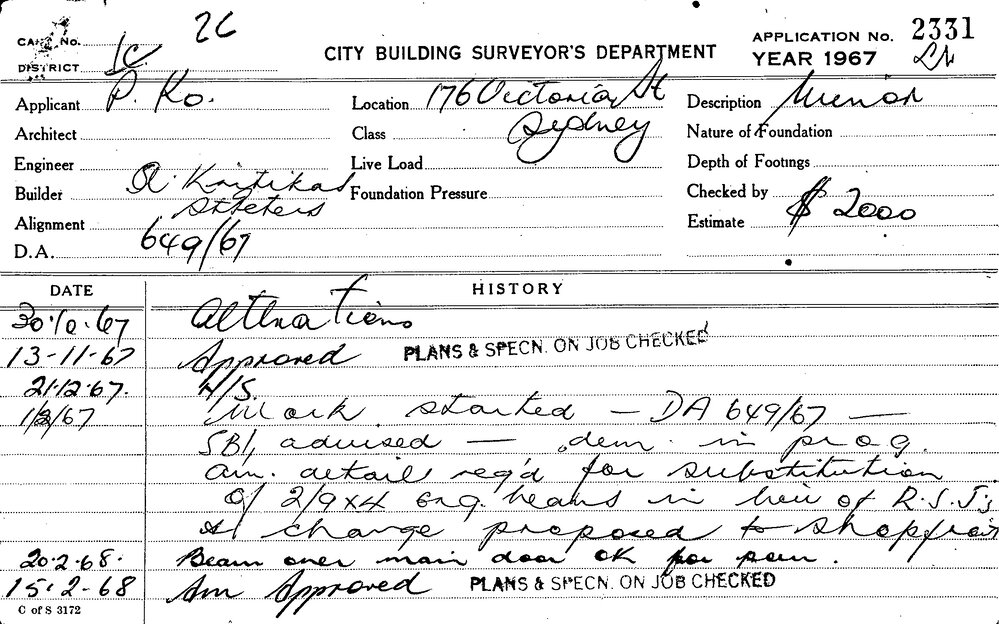 2C
CARD No.
1c
DISTRICT
CITY BUILDING SURVEYOR'S DEPARTMENT
APPLICATION No. 2331
YEAR 1967
Applicant P. Ko.
Location 176 Victoria St
Sydney
Description Minor
Architect
Class
Nature of Foundation
Engineer
Live Load
Depth of Footings
Builder A. Kritikas
St Peters
Foundation Pressure
Checked by
Alignment
Estimate $ 2000
D.A. 649/67
DATE HISTORY
30.10.67 Alterations
13-11-67 Approved PLANS & SPECN. ON JOB CHECKED
21.12.67. N/S.
67 Work started — DA 649/67 —
SBI, advised — dem. in prog.
am. detail req'd for substitution
of 2/9x4 Org. beams in lieu of R.S.J's
& change proposed to shopfront
20.2.68. Beam over main door OK for pour.
15.2.68 Am Approved PLANS & SPECN. ON JOB CHECKED
C of S 3172